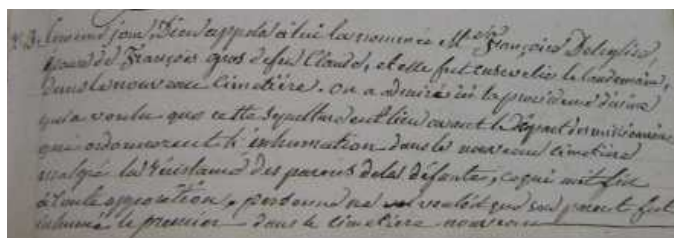 N.B. Le même jour, Dieu appela à lui la nommée Mse Françoise Deléglise,
veuve de François gros defeu Claude, et elle fut ensevelie le lendemain,
dans le nouveau cimetière. On a admiré ici la providence divine
qui a voulu que cette sepulture eut lieu avant le départ des missionnaires
qui ordonnerent l'inhumation dans le nouveau cimetière
malgré la résistance des parens de la défunte, ce qui mit fin
à toute opposition, personne ne voulait que son parent fut
inhumé le premier dans le cimetière nouveau